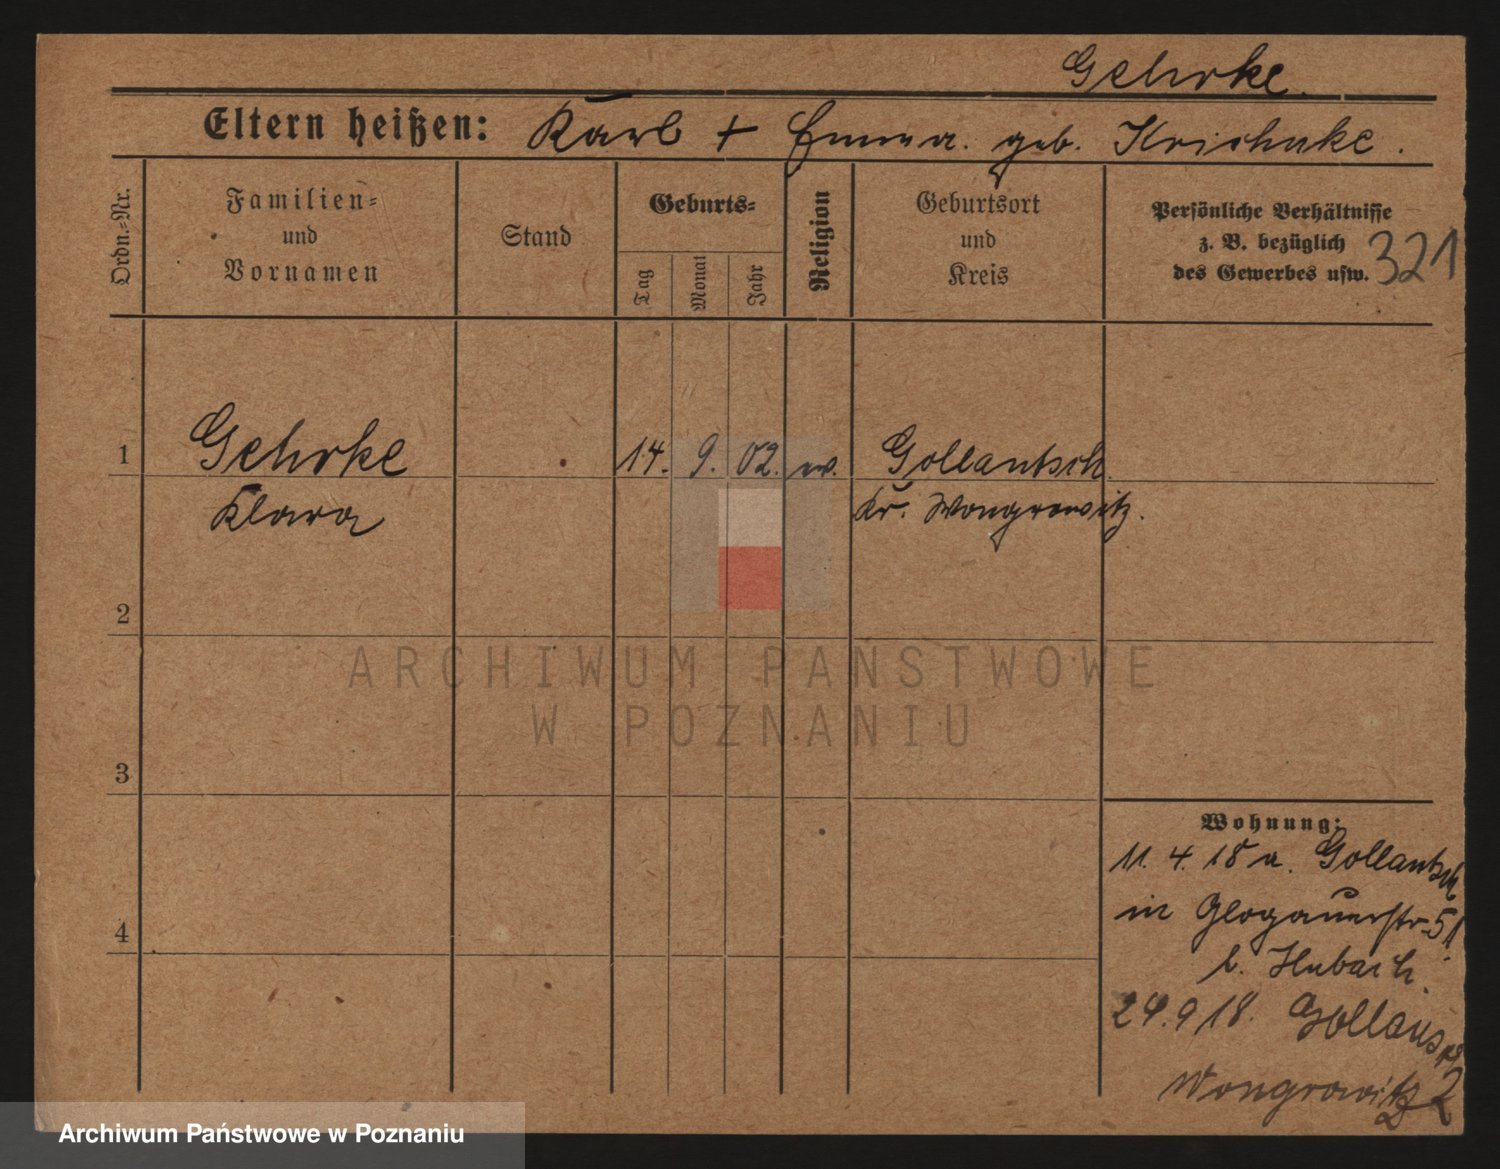 Gehrke.
Eltern heißen: Karl + Emma. geb. Krischnke.
Ordn.-Nr.
Familien-
und
Vornamen
Stand
Geburts-
Tag
Monat
Jahr
Religion
Geburtsort
und
Kreis
Persönliche Verhältnisse
z. B. bezüglich
des Gewerbes usw.
321
1
Gehrke
14. 9. 02.
Gollantsch.
Klara
Kr. Wongrowitz.
2
ARCHIWUM PAŃSTWOWE
W POZNANIU
3
Wohnung:
11. 4. 18 a. Gollantsch
in Glogauerstr. 51
b. Hubach.
4
24. 9 18. Gollansch
Wongrowitz
2
Archiwum Państwowe w Poznaniu